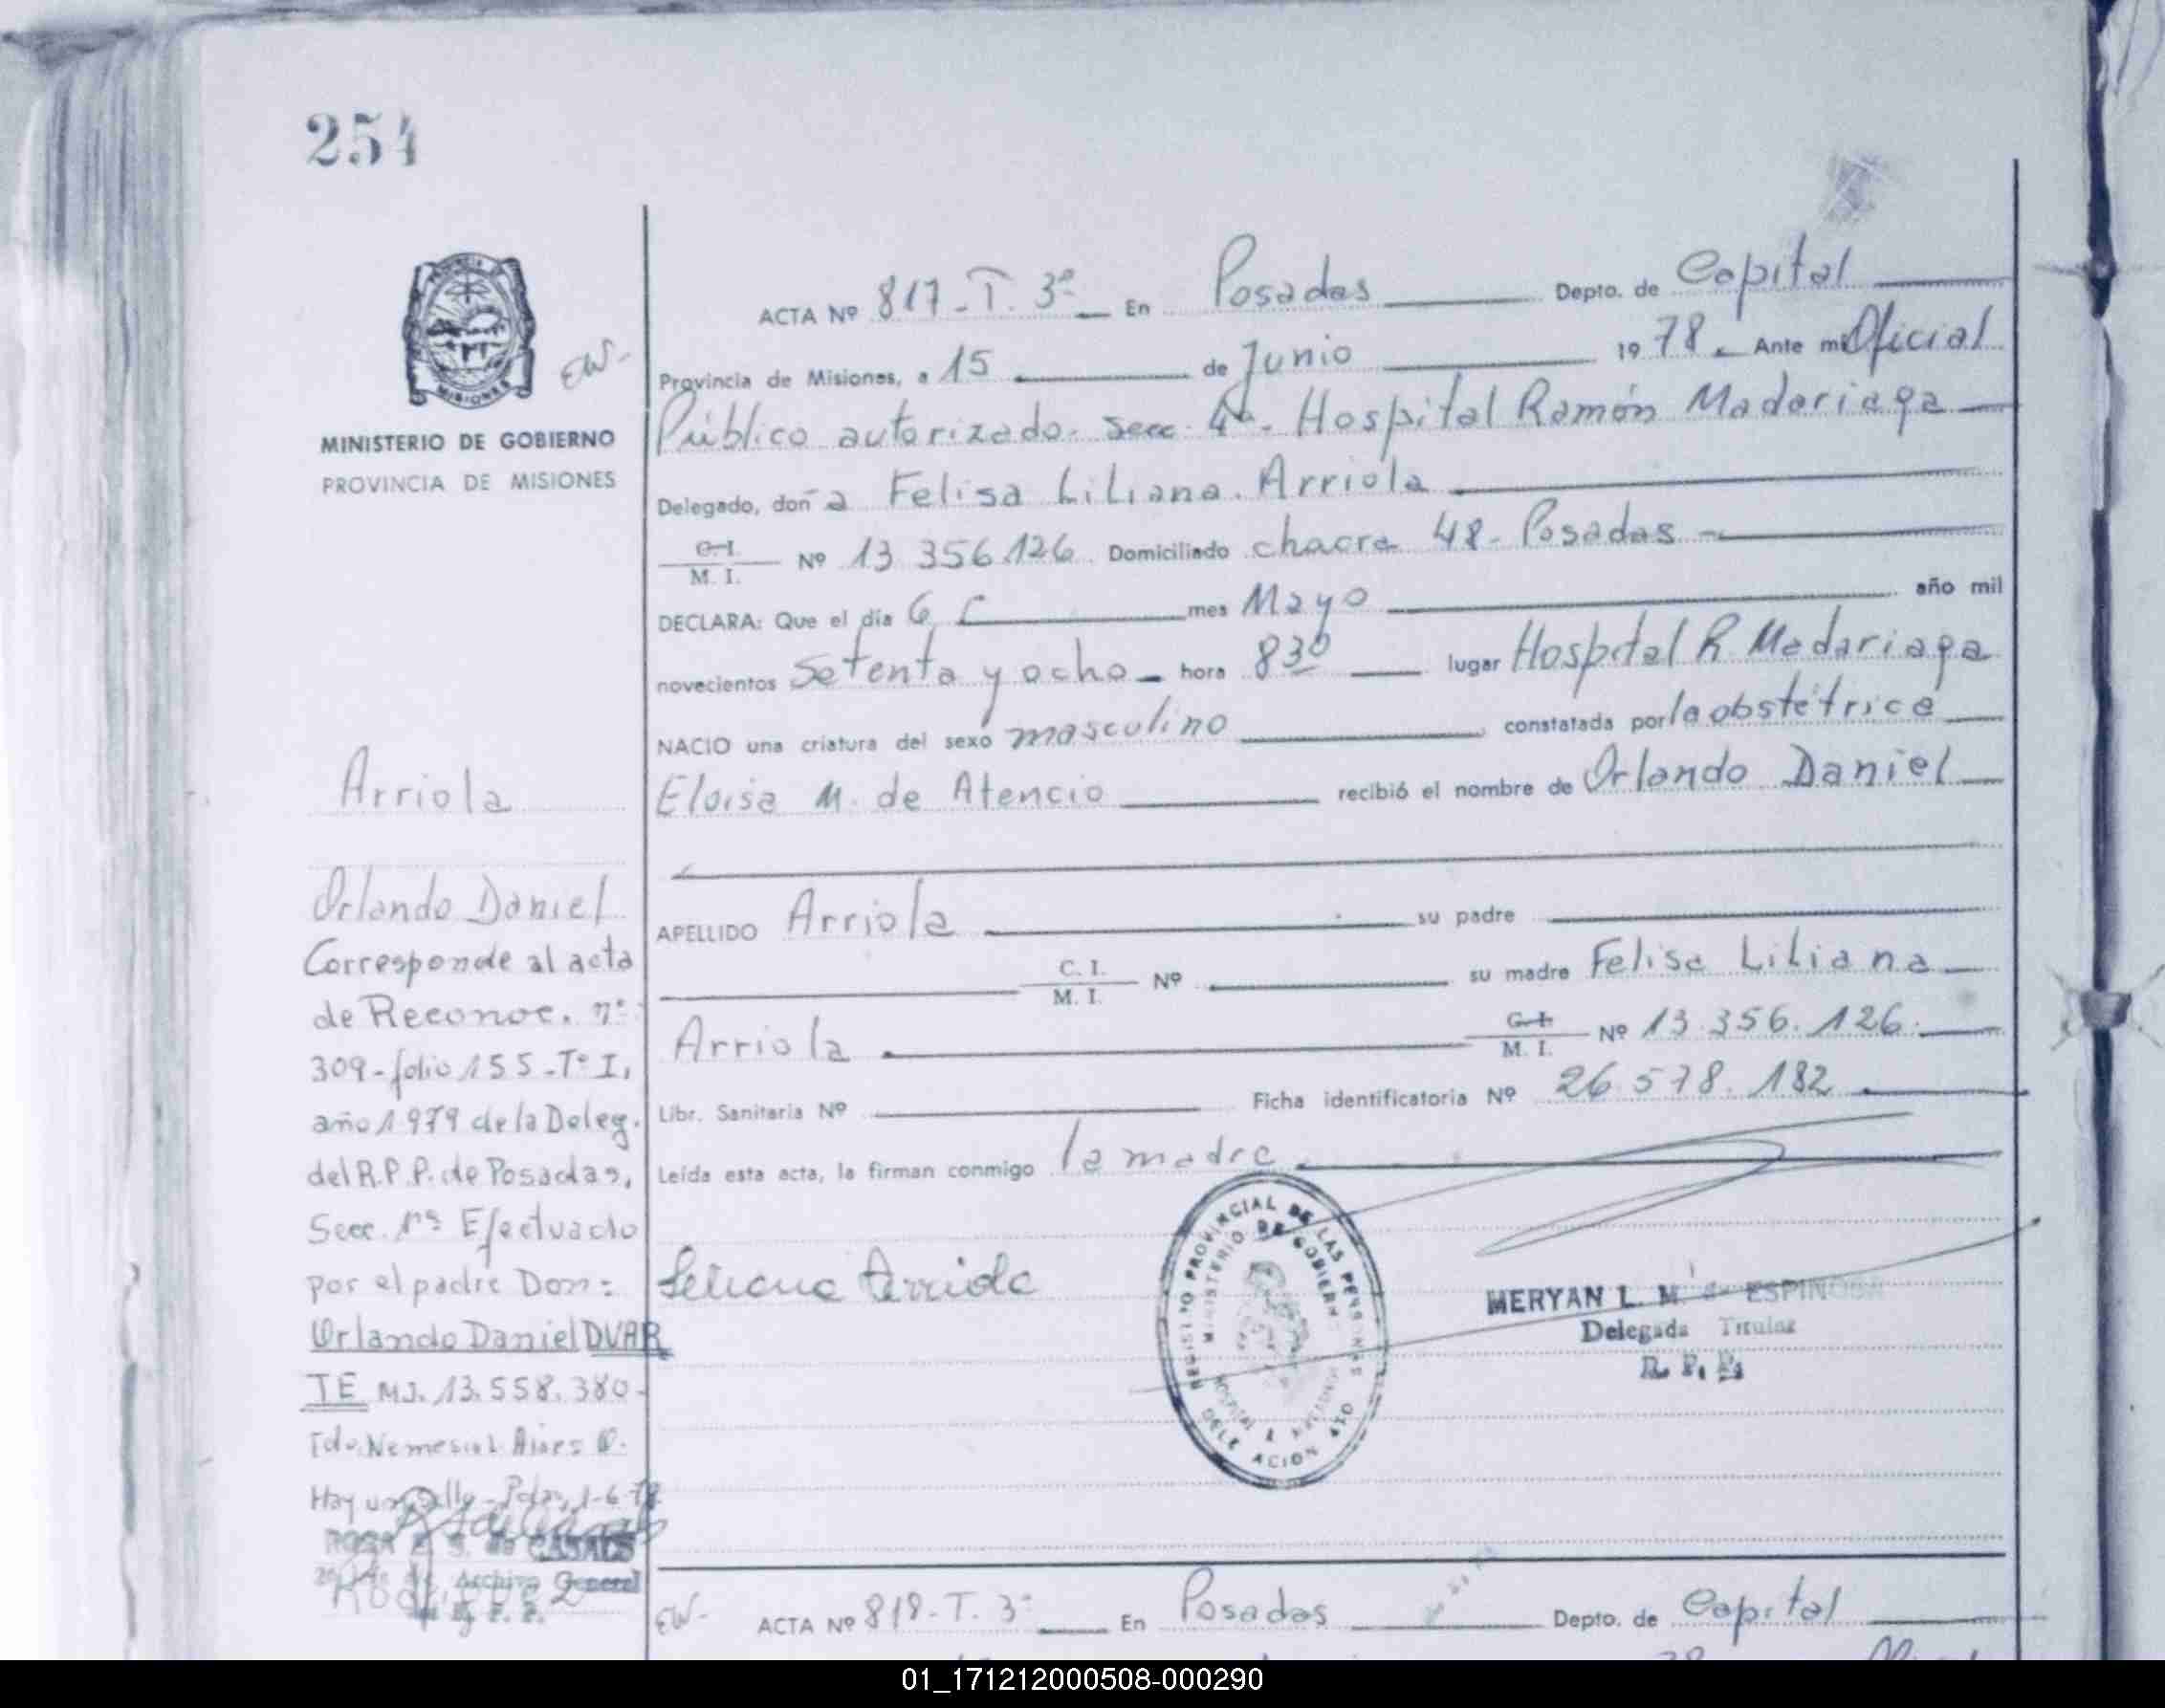 254
ACTA Nº 817-T. 3º En Posadas Depto. de Capital
Provincia de Misiones, a 15 de Junio 1978. Ante mi Oficial
Público autorizado. Secc. 4ª. Hospital Ramón Madariaga
Delegado, doña Felisa Liliana Arriola
C. I.
M. I. Nº 13.356.126 Domiciliado chacra 48- Posadas
DECLARA: Que el día 6 mes Mayo año mil
novecientos Setenta y ocho hora 830 lugar Hospital R Madariaga
NACIO una criatura del sexo masculino constatada por la obstétrica
Eloisa M. de Atencio recibió el nombre de Orlando Daniel
APELLIDO Arriola su padre
C. I.
M. I. Nº su madre Felisa Liliana
Arriola C. I.
M. I. Nº 13.356.126.
Libr. Sanitaria Nº Ficha identificatoria Nº 26.578.182
Leída esta acta, la firman conmigo la madre
Liliana Arriola
REGISTRO PROVINCIAL DE LAS PERSONAS
MINISTERIO DE GOBIERNO
HOSPITAL R. MADARIAGA
DELEGACION 4TO
MERYAN L. M. de ESPINOSA
Delegada Titular
R. P. P.
PROVINCIA DE
MISIONES
EW-
MINISTERIO DE GOBIERNO
PROVINCIA DE MISIONES
Arriola
Orlando Daniel
Corresponde al acta
de Reconoc. nº
309-folio 155-Tº I,
año 1979 de la Deleg.
del R.P.P. de Posadas,
Secc. 1ª Efectuado
por el padre Don:
Orlando Daniel DUAR
TE MJ. 13.558.380-
Fdo. Nemesio
Hay un Sello-Pdas, 1-6-79
ROSA de CASALS
Archivo General
R. P. P.
EW- ACTA Nº 818-T. 3º En Posadas Depto. de Capital
01_171212000508-000290